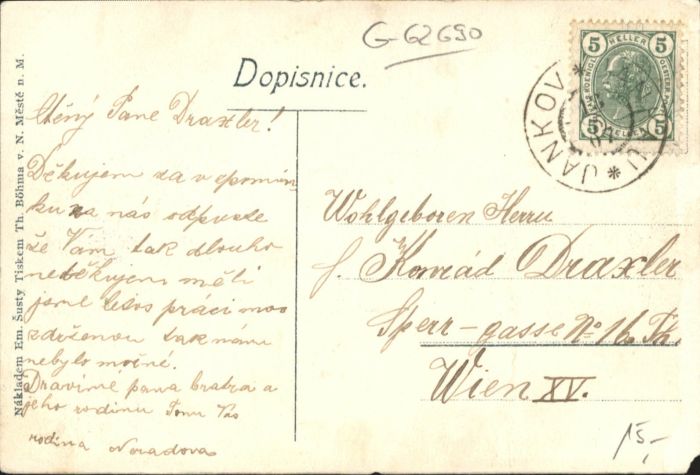 G-62690
Dopisnice.
5 HELLER 5
5 HELLER 5
JANKOV
Ctěný Pane Draxler!
Děkujem za vzpomín
ku na nás odpusťe
že Vám tak dlouho
neděkujem měli
jsme letos práci moc
zdrženou tak nám
nebylo možné.
Pozdravíme pana bratra a
jeho rodinu
rodina
Wohlgeboren Herrn
Konrád Draxler
Sperr-gasse No 16
Wien XV.
15,-
Nákladem Em. Šusty Tiskem Th. Böhma v. N. Městě n. M.